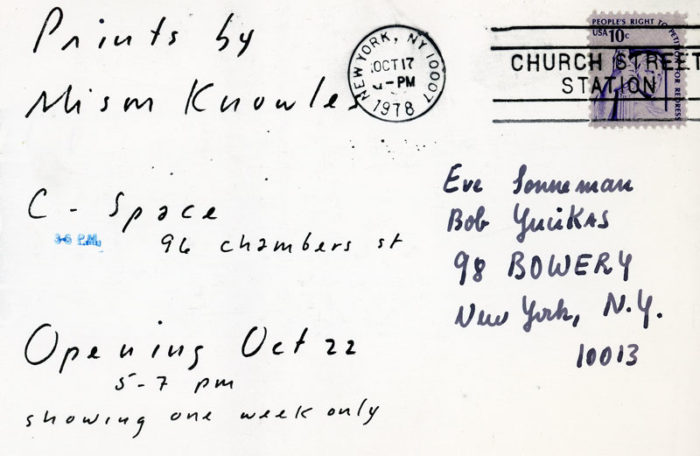 Prints by
Mism Knowles
C - Space
3-6 P.M.
96 chambers st
Opening Oct 22
5-7 pm
showing one week only
NEW YORK, NY 10007
OCT 17
PM
1978
PEOPLE'S RIGHT TO PETITION FOR REDRESS
USA 10c
CHURCH STREET
STATION
Eve Sonneman
Bob
98 BOWERY
New York, N.Y.
10013